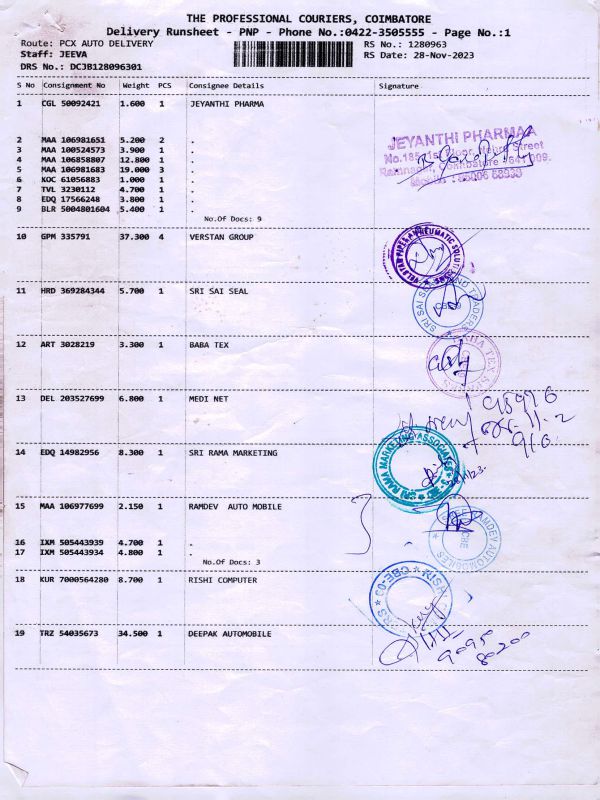 THE PROFESSIONAL COURIERS, COIMBATORE
Delivery Runsheet - PNP - Phone No.:0422-3505555 - Page No.:1
Route: PCX AUTO DELIVERY RS No.: 1280963
Staff: JEEVA RS Date: 28-Nov-2023
DRS No.: DCJB128096301
S No Consignment No Weight PCS Consignee Details Signature
1 CGL 50092421 1.600 1 JEYANTHI PHARMA
JEYANTHI PHARMAA
2 MAA 106981651 5.200 2 .
3 MAA 100524573 3.900 1 .
4 MAA 106858807 12.800 1 .
5 MAA 106981683 19.000 3 .
6 KOC 61056883 1.000 1 .
7 TVL 3230112 4.700 1 .
8 EDQ 17566248 3.800 1 .
9 BLR 5004801604 5.400 1 .
No.Of Docs: 9
10 GPM 335791 37.300 4 VERSTAN GROUP
11 HRD 369284344 5.700 1 SRI SAI SEAL
12 ART 3028219 3.300 1 BABA TEX
13 DEL 203527699 6.800 1 MEDI NET
14 EDQ 14982956 8.300 1 SRI RAMA MARKETING
SRI RAMA MARKETING ASSOCIATES
15 MAA 106977699 2.150 1 RAMDEV AUTO MOBILE
16 IXM 505443939 4.700 1 .
17 IXM 505443934 4.800 1 .
No.Of Docs: 3
18 KUR 7000564280 8.700 1 RISHI COMPUTER
19 TRZ 54035673 34.500 1 DEEPAK AUTOMOBILE
9095
80200